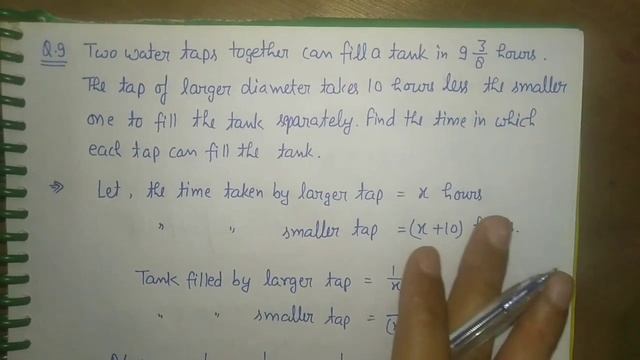 Q.9 Two water taps together can fill a tank in 9 3/8 hours.
The tap of larger diameter takes 10 hours less the smaller
one to fill the tank sparately. Find the time in which
each tap can fill the tank.
⇒ Let, the time taken by larger tap = x hours
" " smaller tap = (x+10)
Tank filled by larger tap = 1/x
" " smaller tap =